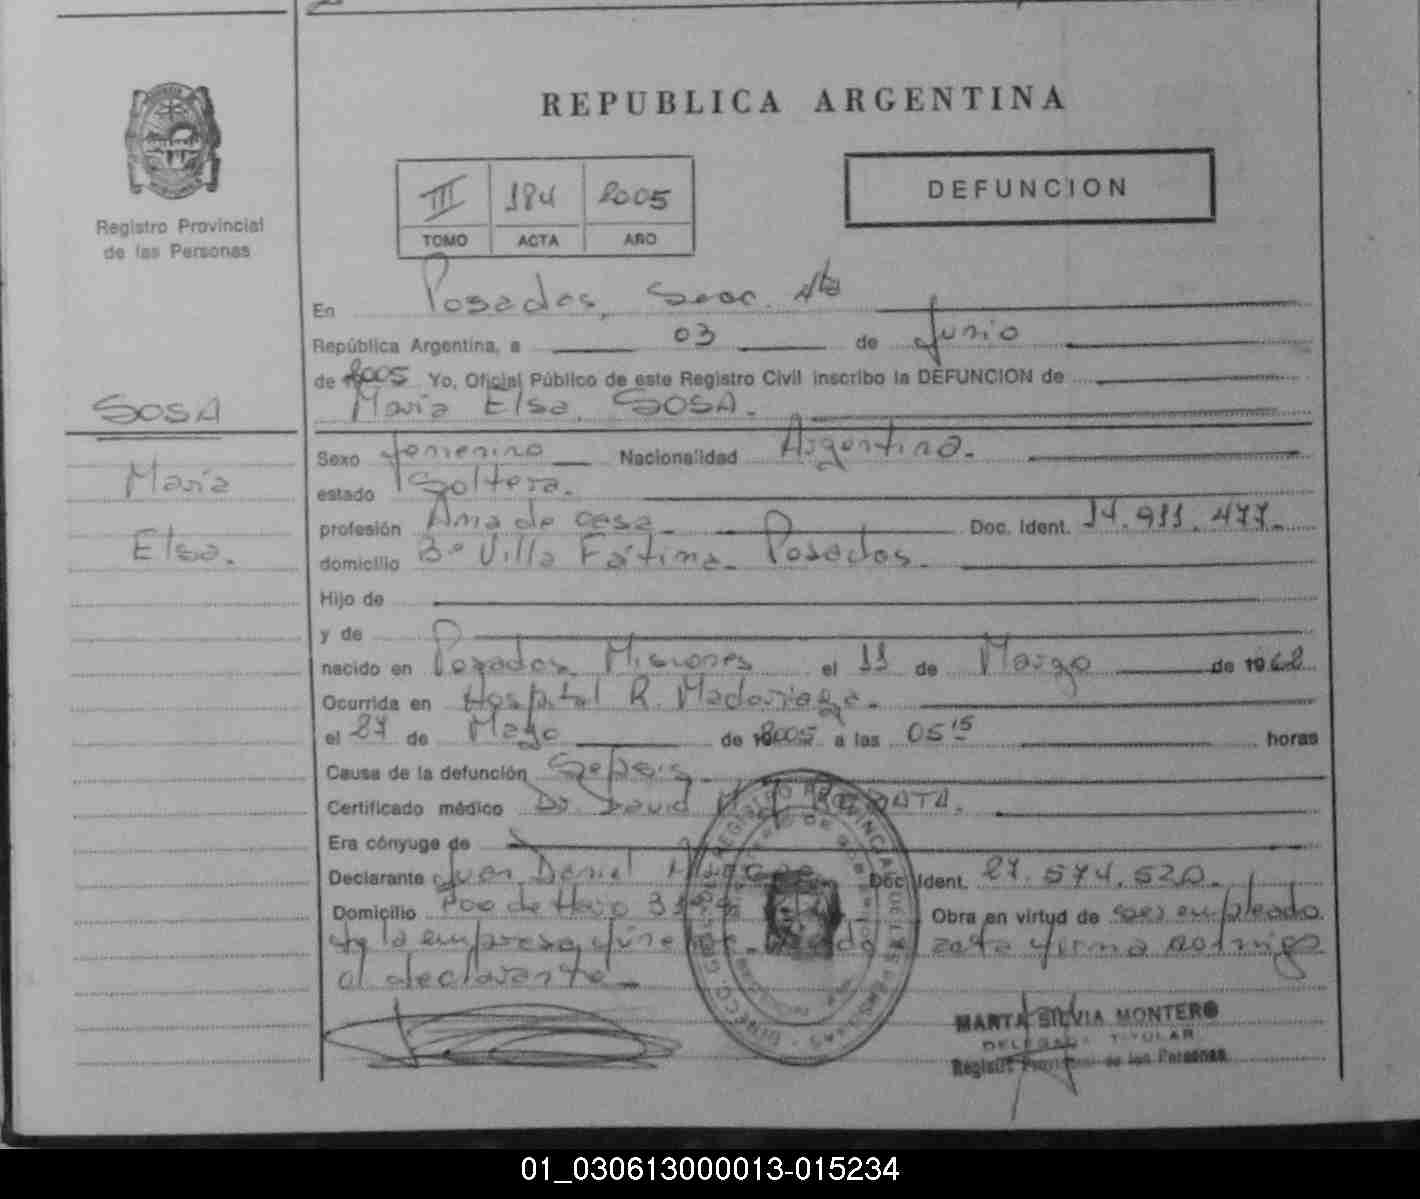 REPUBLICA ARGENTINA
Registro Provincial
de las Personas
III 184 2005
TOMO ACTA AÑO
DEFUNCION
En Posadas, Secc. 4ta
República Argentina, a 03 de Junio
de 2005 Yo, Oficial Público de este Registro Civil inscribo la DEFUNCION de
María Elsa SOSA.
SOSA
María
Elsa.
Sexo femenino Nacionalidad Argentina.
estado Soltera.
profesión Ama de casa Doc. Ident. 14.911.477.
domicilio Bº Villa Fátima - Posadas.
Hijo de
y de
nacido en Posadas Misiones el 11 de Marzo de 1962
Ocurrida en Hospital R. Madariaga.
el 27 de Mayo de 2005 a las 05 15 horas
Causa de la defunción Sepsis
Certificado médico Dr. David
Era cónyuge de
Declarante Juan Daniel Doc. Ident. 27.574.520.
Domicilio Obra en virtud de ser empleado
de la empresa firma conmigo
el declarante.
MARTA SILVIA MONTERO
DELEGADA TITULAR
Registro Provincial de las Personas
01_030613000013-015234